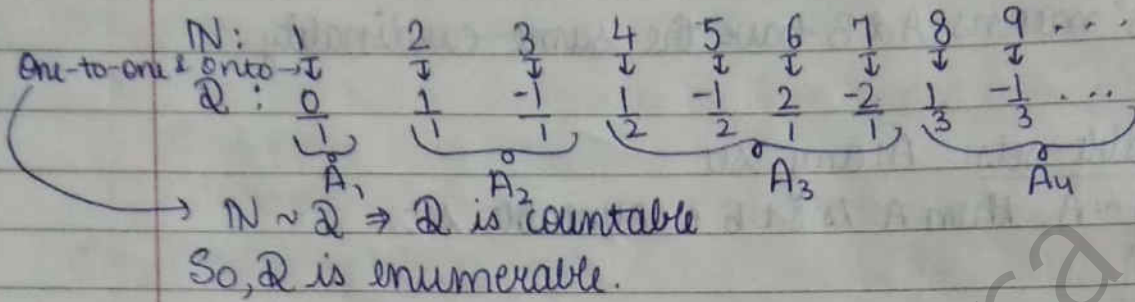 N: 1 2 3 4 5 6 7 8 9 ...
One-to-one & onto → ↧ ↧ ↧ ↧ ↧ ↧ ↧ ↧ ↧
Q: 0/1 1/1 -1/1 1/2 -1/2 2/1 -2/1 1/3 -1/3 ...
A₁ A₂ A₃ A₄
→ N ~ Q ⇒ Q is countable
So, Q is enumerable.